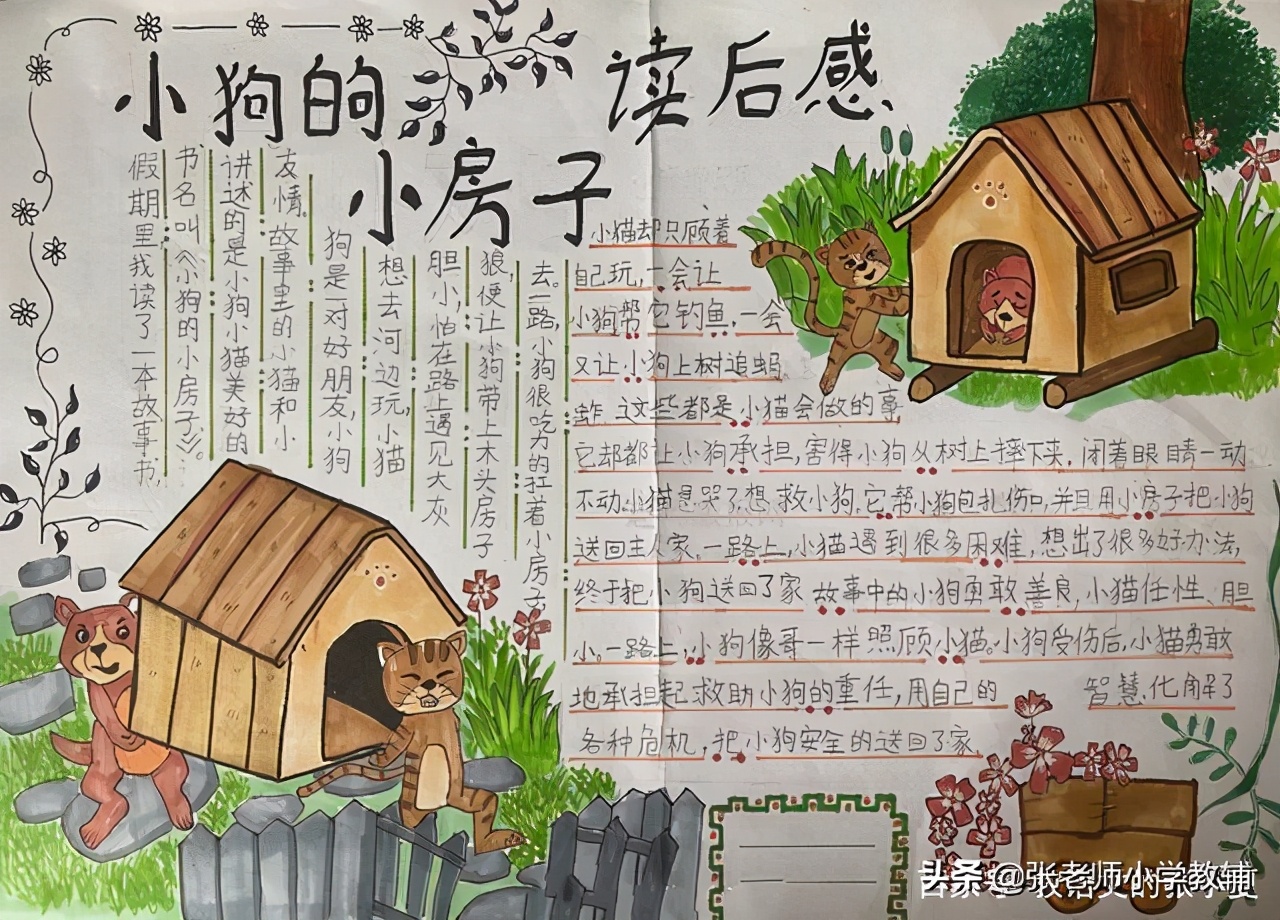 小狗的
小房子
读后感
假期里我读了一本故事书,
书名叫《小狗的小房子》。
讲述的是小狗小猫美好的
友情。故事里的小猫和小
狗是一对好朋友,小狗
想去河边玩,小猫
胆小,怕在路上遇见大灰
狼,便让小狗带上木头房子
去。一路,小狗很吃为的扛着小房子
小猫却只顾着
自己玩,一会让
小狗帮它钓鱼,一会
又让小狗上树追蚂
蚱.这些都是小猫会做的事
它却都让小狗承担,害得小狗从树上摔下来.闭着眼睛一动
不动.小猫急哭了,想救小狗.它帮小狗包扎伤口,并且用小房子把小狗
送回主人家.一路上,小猫遇到很多困难,想出了很多好办法,
终于把小狗送回了家.故事中的小狗勇敢善良,小猫任性、胆
小。一路上,小狗像哥一样照顾小猫。小狗受伤后,小猫勇敢
地承担起救助小狗的重任,用自己的智慧,化解了
各种危机,把小狗安全的送回了家.
头条@张老师小学教辅